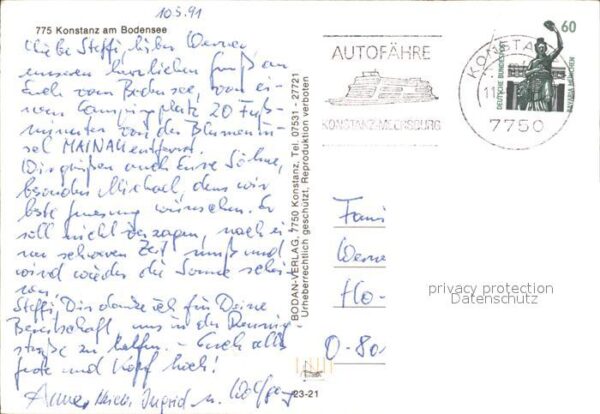 10.5.91
775 Konstanz am Bodensee
Liebe Steffi, lieber Werner
unseren herzlichen Gruß an
Euch vom Bodensee, von ei-
nem Campingplatz 20 Fuß-
minuten von der Blumenin-
sel MAINAU entfernt.
Wir grüßen auch Eure Söhne,
besonders Michael, dem wir
beste Genesung wünschen. Er
soll nicht verzagen, nach ei-
ner schweren Zeit muß und
wird wieder die Sonne schei-
nen.
Steffi, Dir danke ich für Deine
Bereitschaft uns in der Rennig-
straße zu helfen. - Euch alles
Gute und Kopf hoch!
Ingrid u. Wolfgang
BODAN-VERLAG, 7750 Konstanz, Tel. 07531 - 27721
Urheberrechtlich geschützt, Reproduktion verboten
23-21
AUTOFÄHRE
KONSTANZ-MEERSBURG
KONSTA
11.
7750
60
DEUTSCHE BUNDESPOST
BAVARIA MÜNCHEN
Fami
Werne
Ho-
O-80
privacy protection
Datenschutz